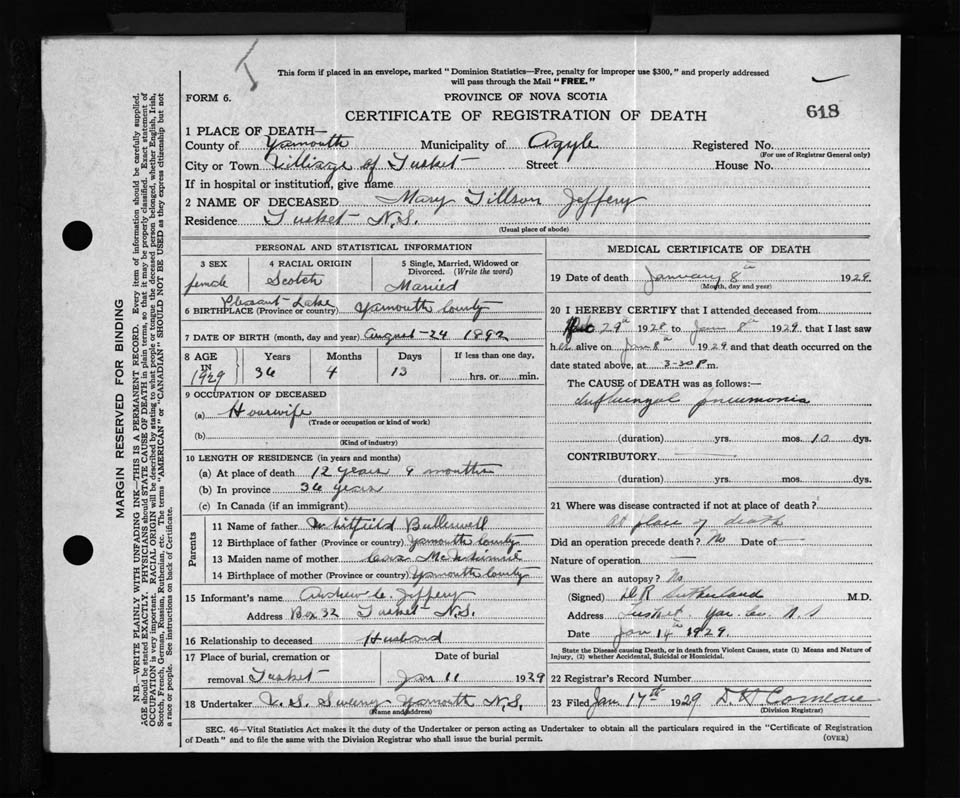 This form if placed in an envelope, marked "Dominion Statistics—Free, penalty for improper use $300," and properly addressed
will pass through the Mail "FREE."
FORM 6.
PROVINCE OF NOVA SCOTIA
618
CERTIFICATE OF REGISTRATION OF DEATH
1 PLACE OF DEATH—
County of Yarmouth Municipality of Argyle Registered No.
(For use of Registrar General only)
City or Town Village of Tusket Street House No.
If in hospital or institution, give name
2 NAME OF DECEASED Mary Tillson Jeffery
Residence Tusket N.S.
(Usual place of abode)
PERSONAL AND STATISTICAL INFORMATION
3 SEX 4 RACIAL ORIGIN 5 Single, Married, Widowed or
Divorced. (Write the word)
female Scotch Married
Pleasant Lake
6 BIRTHPLACE (Province or country) Yarmouth County
7 DATE OF BIRTH (month, day and year) August 24 1892
8 AGE Years Months Days If less than one day,
IN
1929 36 4 13 hrs. or min.
9 OCCUPATION OF DECEASED
(a) Housewife
(Trade or occupation or kind of work)
(b)
(Kind of industry)
10 LENGTH OF RESIDENCE (in years and months)
(a) At place of death 12 years 9 months
(b) In province 36 years
(c) In Canada (if an immigrant)
Parents
11 Name of father Whitfield
12 Birthplace of father (Province or country) Yarmouth County
13 Maiden name of mother
14 Birthplace of mother (Province or country) Yarmouth County
15 Informant's name Andrew C. Jeffery
Address Box 32 Tusket N.S.
16 Relationship to deceased Husband
17 Place of burial, cremation or Date of burial
removal Tusket Jan 11 1929
18 Undertaker V. S. Sweeny Yarmouth N.S.
(Name and address)
MEDICAL CERTIFICATE OF DEATH
19 Date of death January 8th 1929
(Month, day and year)
20 I HEREBY CERTIFY that I attended deceased from
29th 1928 to Jan 8th 1929 that I last saw
her alive on Jan 8th 1929 and that death occurred on the
date stated above, at 3-30 P m.
The CAUSE of DEATH was as follows:—
Influenzal pneumonia
(duration) yrs. mos. 10 dys.
CONTRIBUTORY
(duration) yrs. mos. dys.
21 Where was disease contracted if not at place of death?
At place of death
Did an operation precede death? No Date of
Nature of operation
Was there an autopsy? No
(Signed) Sutherland M.D.
Address Tusket Yar. Co. N S
Date Jan 14th 1929.
State the Disease causing Death, or in death from Violent Causes, state (1) Means and Nature of
Injury, (2) whether Accidental, Suicidal or Homicidal.
22 Registrar's Record Number
23 Filed Jan 17th 1929 Comeau
(Division Registrar)
SEC. 46—Vital Statistics Act makes it the duty of the Undertaker or person acting as Undertaker to obtain all the particulars required in the "Certificate of Registration
of Death" and to file the same with the Division Registrar who shall issue the burial permit.
(OVER)
MARGIN RESERVED FOR BINDING
N.B.—WRITE PLAINLY WITH UNFADING INK—THIS IS A PERMANENT RECORD. Every item of information should be carefully supplied.
AGE should be stated EXACTLY. PHYSICIANS should STATE CAUSE OF DEATH in plain terms, so that it may be properly classified. Exact statement of
OCCUPATION is very important. RACIAL ORIGIN will be described by stating to what people or tongue the deceased person belonged, whether English, Irish,
Scotch, French, German, Russian, Ruthenian, etc. The terms "AMERICAN" or "CANADIAN" SHOULD NOT BE USED as they express citizenship but not
a race or people. See instructions on back of Certificate.